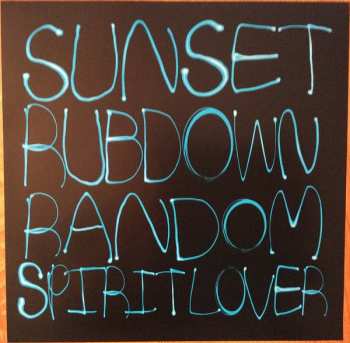 SUNSET
RUBDOWN
RANDOM
SPIRITLOVER